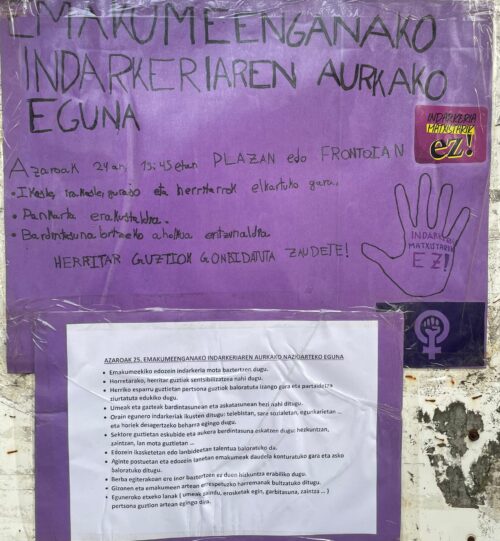 EMAKUMEENGANAKO
INDARKERIAREN AURKAKO
EGUNA
INDARKERIA
MATXISTARIK
EZ!
AZAROAK 24an, 15:45etan PLAZAN edo FRONTOIAN
• Ikasle, irakasle, guraso eta herritarrok elkartuko gara.
• Pankarta erakustaldia.
• Bardintasuna lortzeko ahotsa entzunaldia.
HERRITAR GUZTIOK GONBIDATUTA ZAUDETE!
INDARKERIA
MATXISTARIK
EZ!
AZAROAK 25. EMAKUMEENGANAKO INDARKERIAREN AURKAKO NAZIOARTEKO EGUNA
• Emakumeekiko edozein indarkeria mota baztertzen dugu.
• Horretarako, herritar guztiak sentsibilizatzea nahi dugu.
• Herriko esparru guztietan pertsona guztiak baloratuta izango gara eta partaidetza
ziurtatuta edukiko dugu.
• Umeak eta gazteak bardintasunean eta askatasunean hezi nahi ditugu.
• Orain egunero indarkeriak ikusten ditugu: telebistan, sara sozialetan, egunkarietan ...
eta horiek desagertzeko beharra egingo dugu.
• Sektore guztietan eskubide eta aukera berdintasuna eskatzen dugu: hezkuntzan,
zaintzan, lan mota guztietan ...
• Edozein ikasketatan edo lanbidetan talentua baloratuko da.
• Aginte postuetan eta edozein lanetan emakumeak daudela konturatuko gara eta asko
baloratuko ditugu.
• Berba egiterakoan ere inor baztertzen ez duen hizkuntza erabiliko dugu.
• Gizonen eta emakumeen artean errespetuzko harremanak bultzatuko ditugu.
• Eguneroko etxeko lanak ( umeak zaindu, erosketak egin, garbitasuna, zaintza ... )
pertsona guztion artean egingo dira.